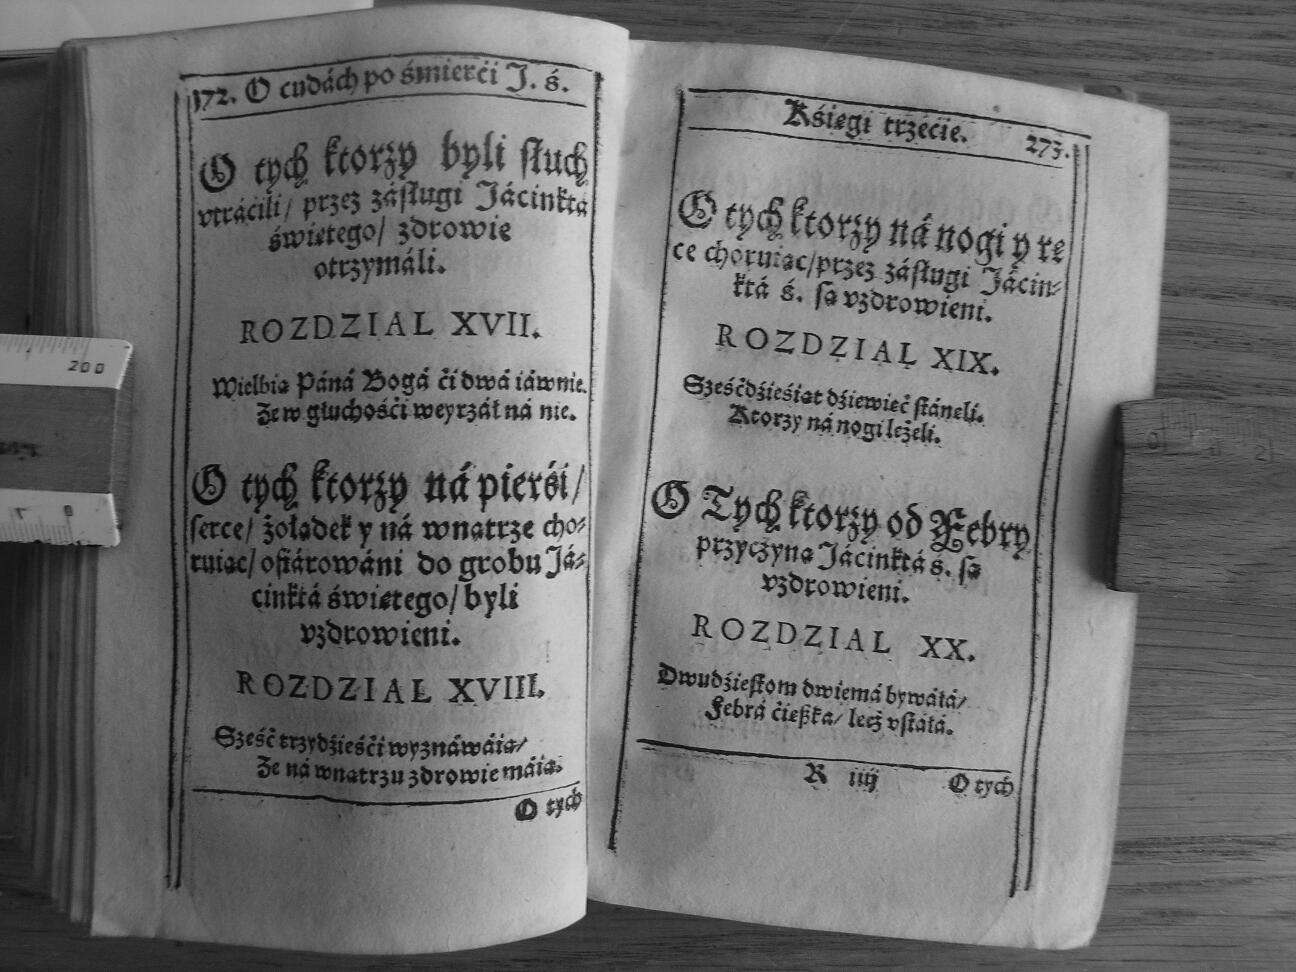 172. O cudách po śmierći J. ś.
O tych ktorzy byli słuch
vtráćili/ przez zásługi Jácinktá
świętego/ zdrowie
otrzymáli.
ROZDZIAL XVII.
Wielbią Páná Bogá ći dwá iáwnie.
Że w głuchośći weyrzał ná nie.
O tych ktorzy ná pierśi/
serce/ żołądek y ná wnątrze cho-
ruiąc/ ofiárowáni do grobu Já-
cinktá świętego/ byli
vzdrowieni.
ROZDZIAL XVIII.
Sześć trzydźieśći wyznáwáią/
Że ná wnątrzu zdrowie máią.
O tych
Kśięgi trzećie. 273.
O tych ktorzy ná nogi y rę
ce choruiąc/ przez zásługi Jácin-
ktá ś. są vzdrowieni.
ROZDZIAL XIX.
Sześćdźieśiąt dźiewięć stánęli.
Ktorzy ná nogi leżeli.
O Tych ktorzy od Febry
przyczyną Jácinktá ś. są
vzdrowieni.
ROZDZIAL XX.
Dwudźiestom dwiemá bywáłá/
Febrá ćięszka/ lecz vstáłá.
R iiij O tych
200